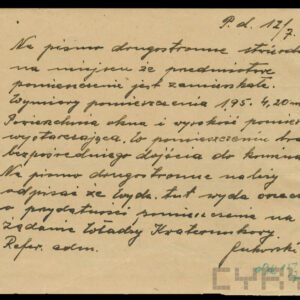 P. d. 12/7.
Na pismo drugostronne stwierdz
na miejscu że przedmiotowe
pomieszczenie jest zamieszkałe.
Wymiary pomieszczenia 1,95. 4,20 m
Powierzchnia okna i wysokość pomieszcz
wystarczająca, to pomieszczenie
bezpośredniego dojścia do
Na pismo drugostronne należy
odpisać że Wydz. tut wyda
o przydatności pomieszczenia na
żądanie Władzy Kwaterunkowej.
Refer. adm.